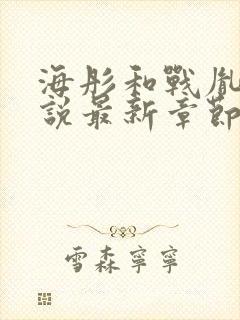 海彤和戰胤
說最新章節
雪森寧寧